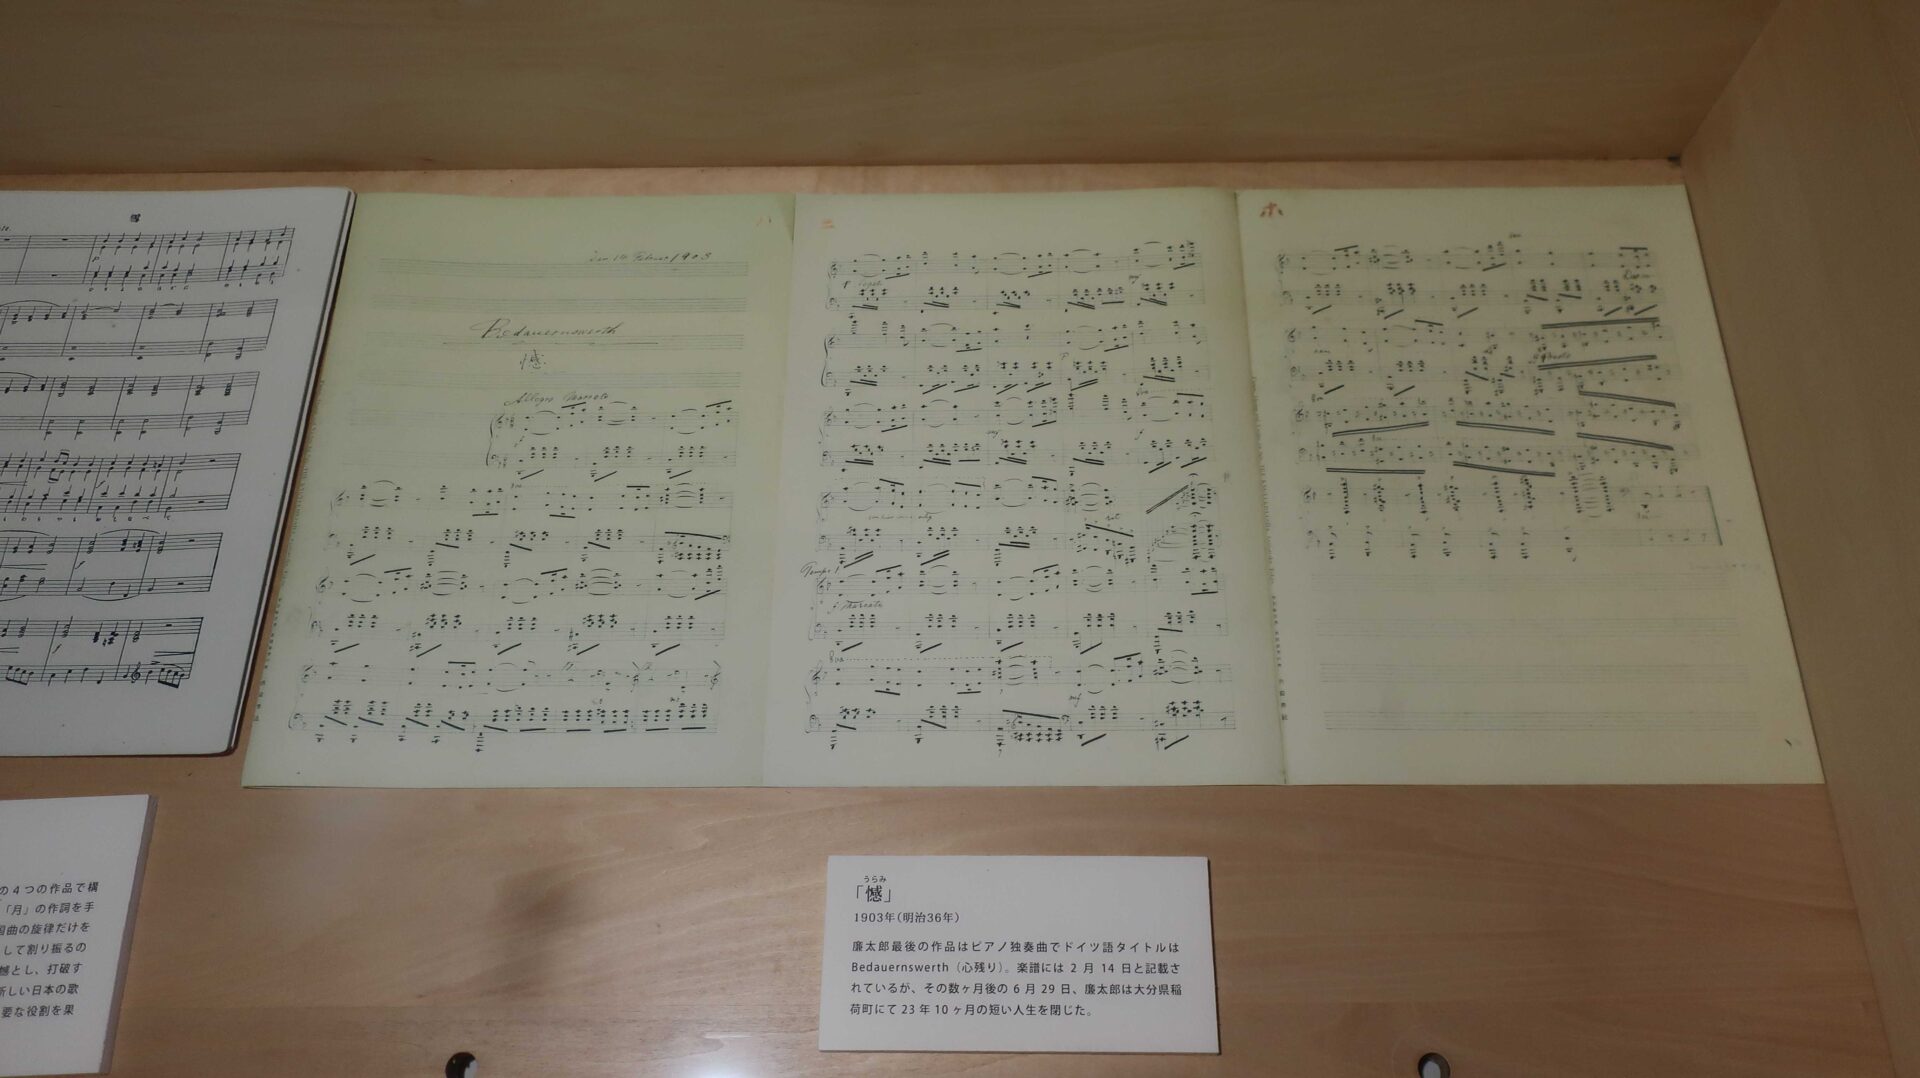 雪
den 14 Februar 1903
Bedauernswerth
憾
Allegro Marcato
二
Tempo I
f Marcato
8va
mf
ホ
の4つの作品で構
「月」の作詞を手
国曲の旋律だけを
して割り振るの
憾とし、打破す
新しい日本の歌
要な役割を果
うらみ
「憾」
1903年(明治36年)
廉太郎最後の作品はピアノ独奏曲でドイツ語タイトルは
Bedauernswerth(心残り)。楽譜には 2 月 14 日と記載さ
れているが、その数ヶ月後の 6 月 29 日、廉太郎は大分県稲
荷町にて 23 年 10 ヶ月の短い人生を閉じた。